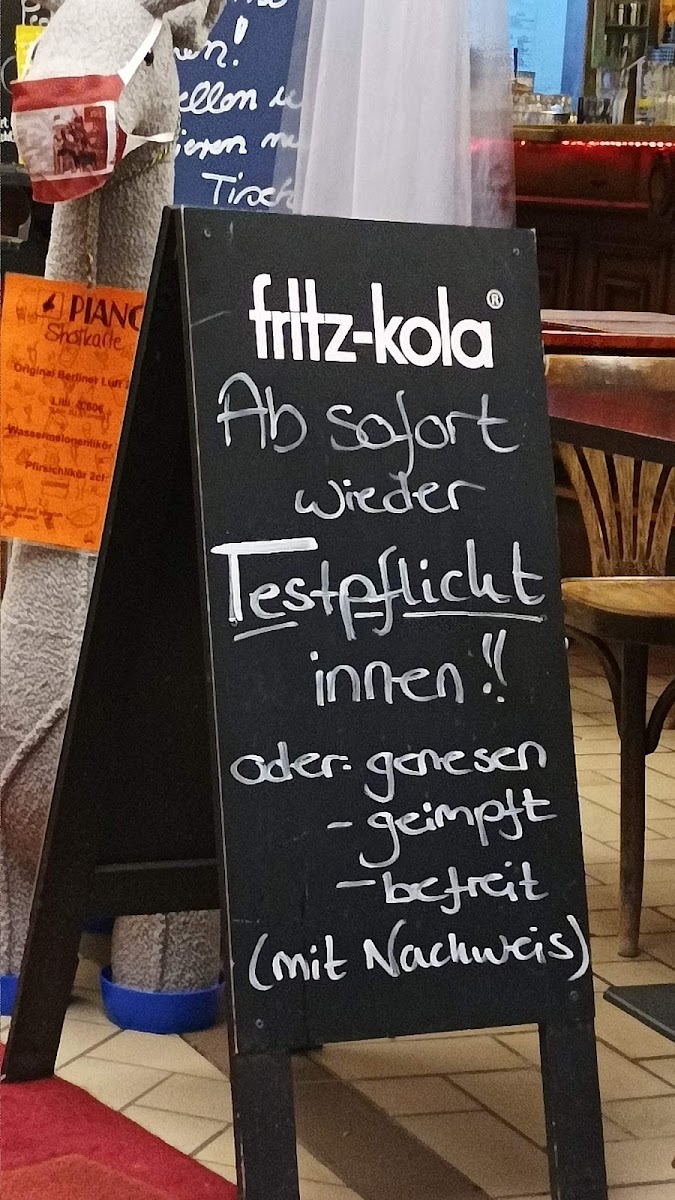 en!
ellen
ieren
Tisch
PIANO
Shotkarte
Original Berliner Luft
Wassermelonenlikör
Pfirsichlikör 2cl:
fritz-kola®
Ab sofort
wieder
Testpflicht
innen!!
oder: genesen
- geimpft
- befreit
(mit Nachweis)